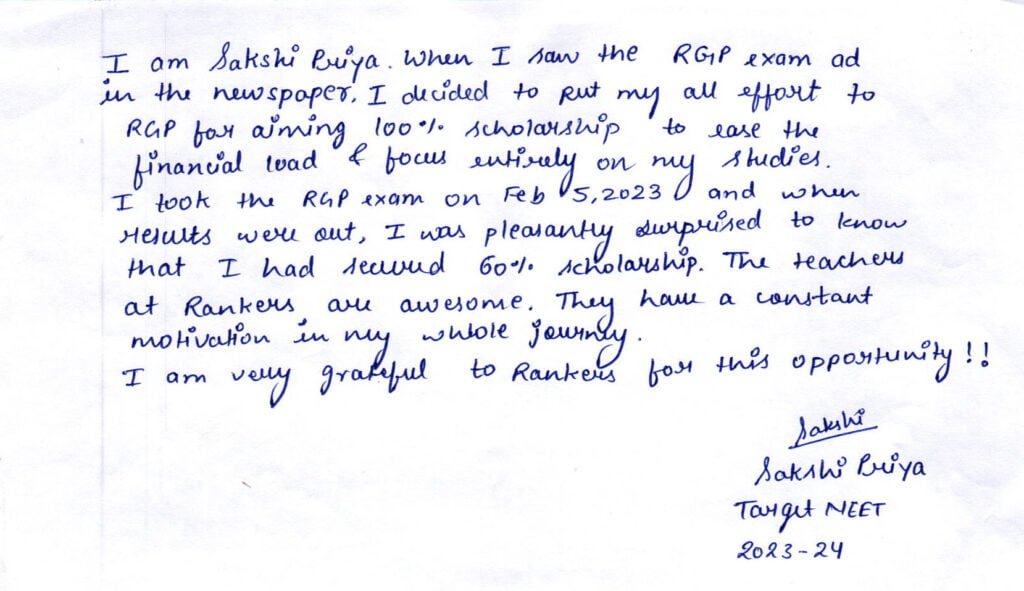 I am Sakshi Priya. When I saw the RGP exam ad
in the newspaper. I decided to put my all effort to
RGP for aiming 100% scholarship to ease the
financial load & focus entirely on my studies.
I took the RGP exam on Feb 5, 2023 and when
results were out, I was pleasantly surprised to know
that I had secured 60% scholarship. The teachers
at Rankers are awesome. They have a constant
motivation in my whole journey.
I am very grateful to Rankers for this opportunity!!
Sakshi
Sakshi Priya
Target NEET
2023-24